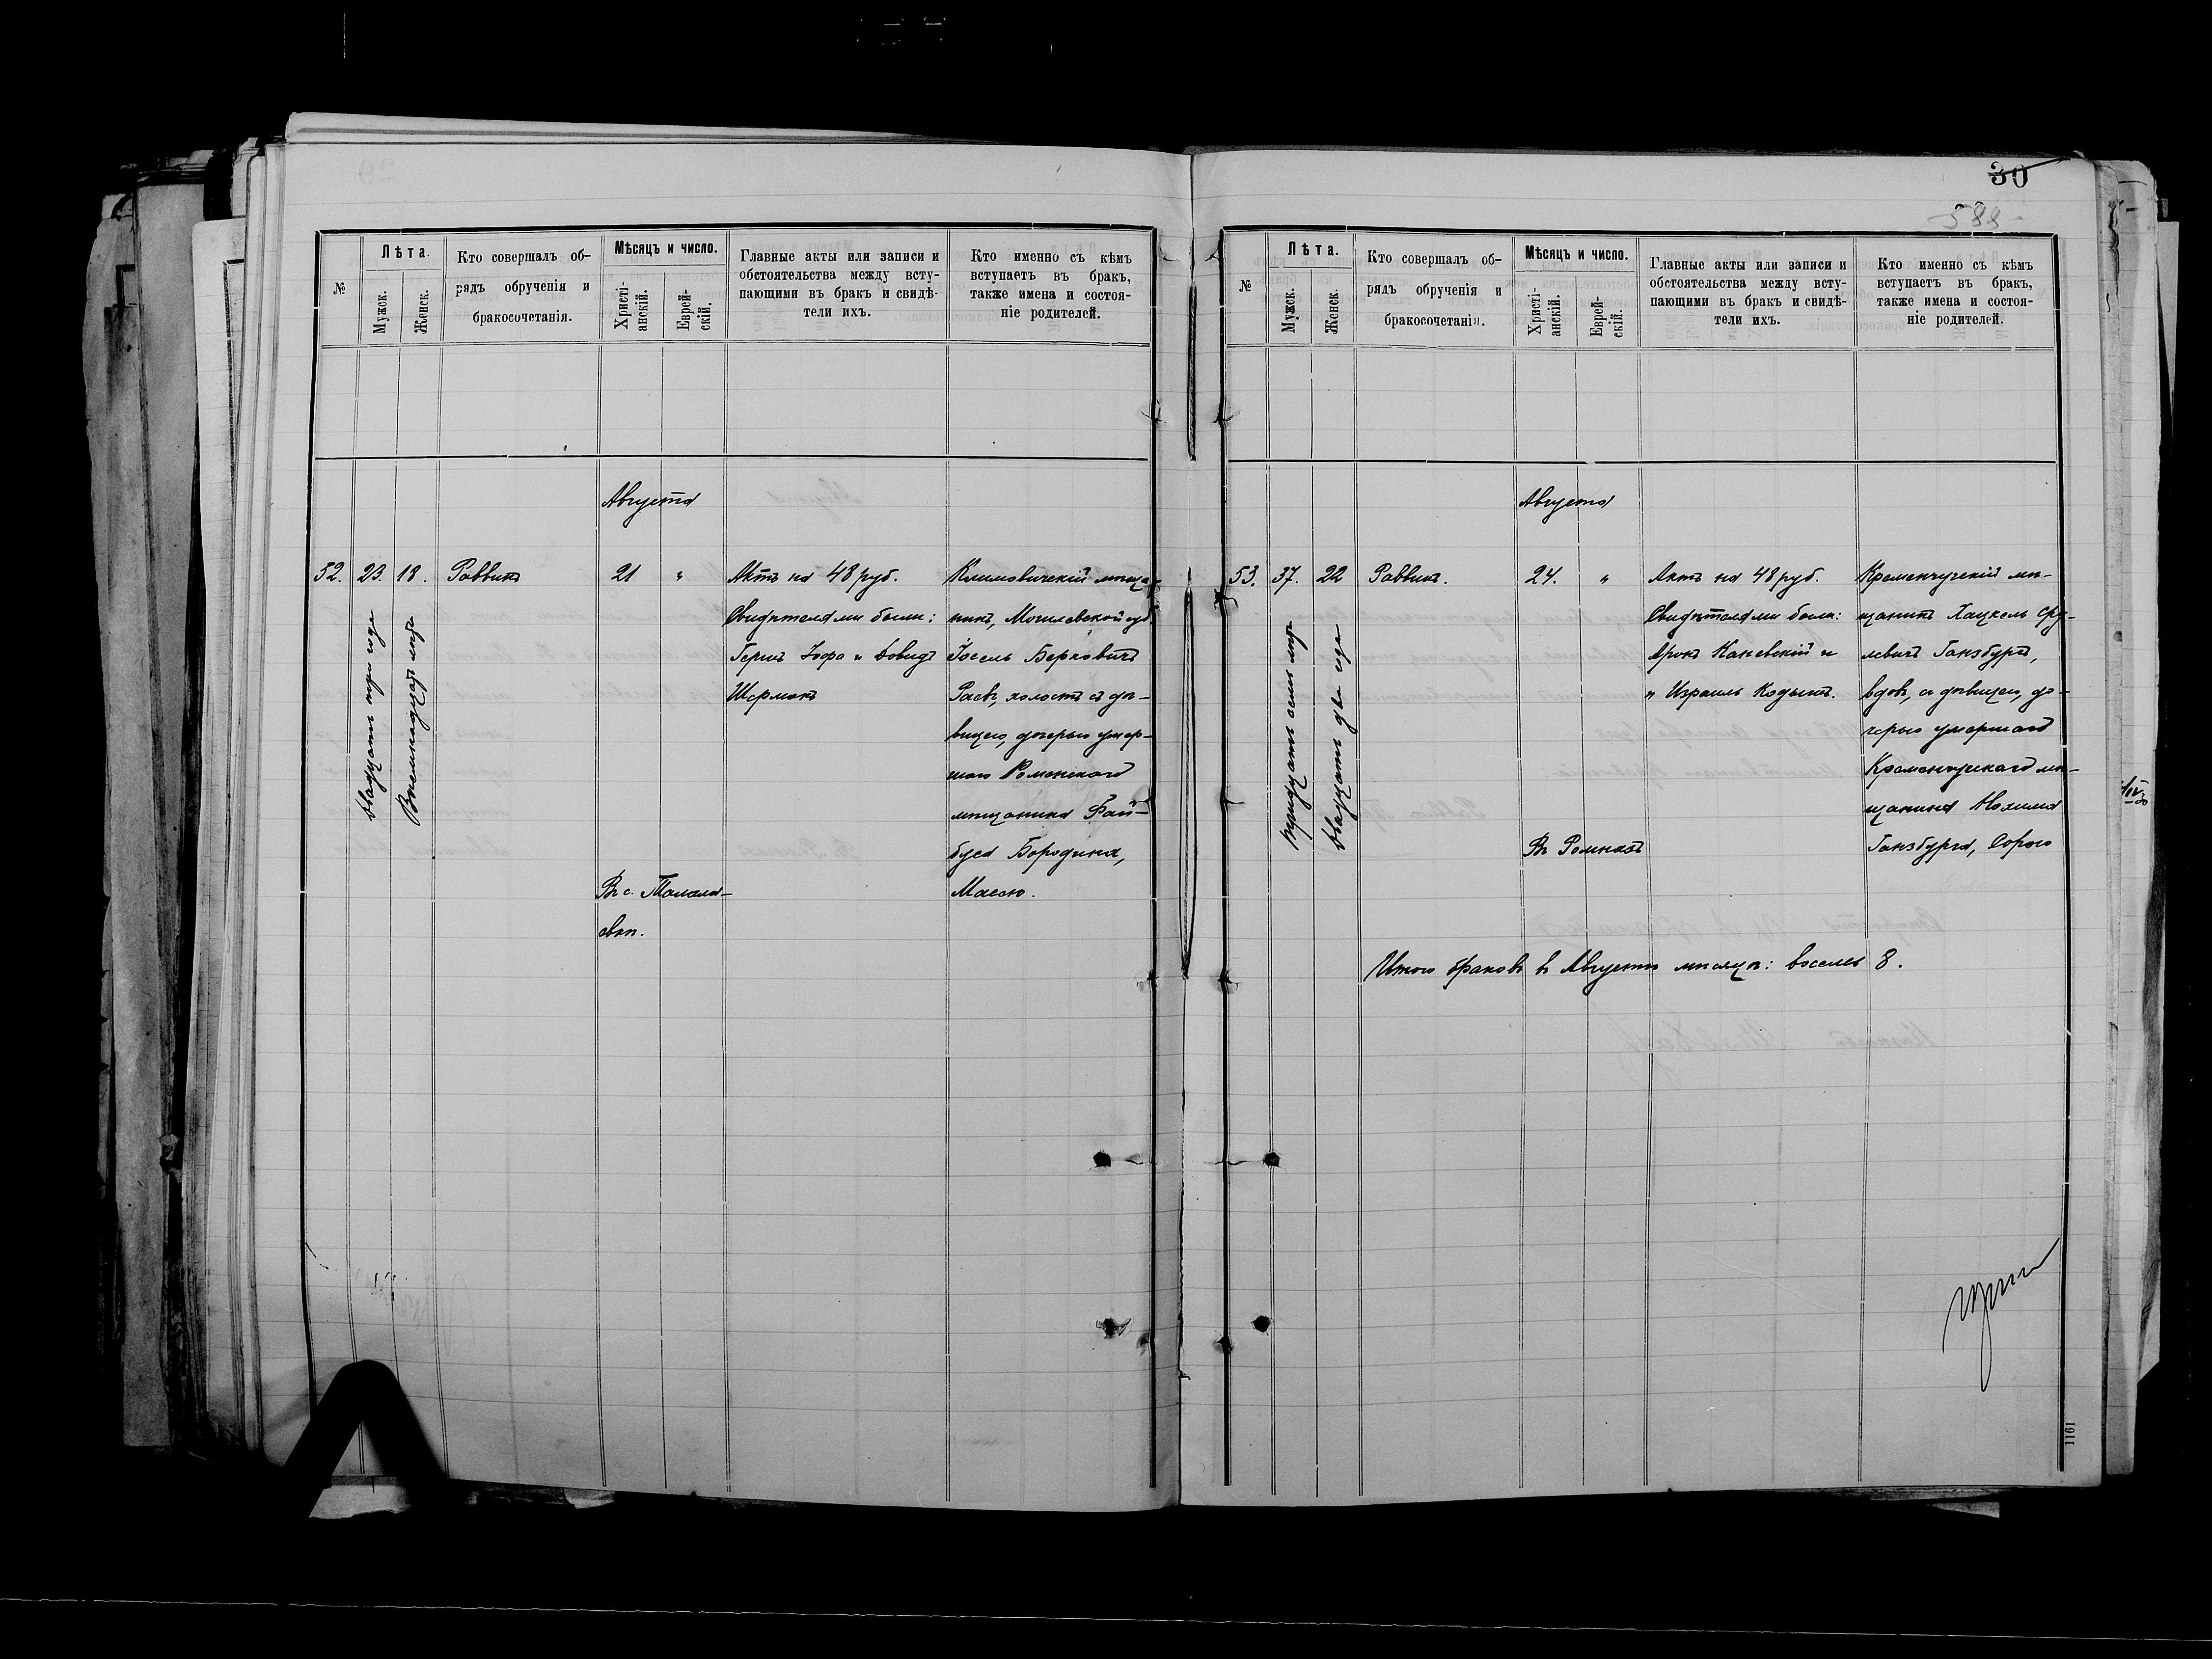 №
Лѣта.
Мужск.
Женск.
Кто совершалъ об-
рядъ обрученія и
бракосочетанія.
Мѣсяцъ и число.
Христі-
анскій.
Еврей-
скій.
Главные акты или записи и
обстоятельства между всту-
пающими въ бракъ и свидѣ-
тели ихъ.
Кто именно съ кѣмъ
вступаетъ въ бракъ,
также имена и состоя-
ніе родителей.
Августа
52. 23. 18. Раввинъ 21 "
двадцать три года
Восемнадцать лѣтъ
Актъ на 48 руб.
Свидѣтелями были:
Іоффа и Довидъ
Шерманъ
Климовичскій мѣща-
нинъ, Могилевской губ.
Іосель Берковичъ
Раевъ, холостъ съ дѣ-
вицею, дочерью умер-
шаго Роменскаго
мѣщанина Фай-
буса Бородина,
Масею.
Въ с. Талала-
евкѣ.
30
588
№
Лѣта.
Мужск.
Женск.
Кто совершалъ об-
рядъ обрученія и
бракосочетанія.
Мѣсяцъ и число.
Христі-
анскій.
Еврей-
скій.
Главные акты или записи и
обстоятельства между всту-
пающими въ бракъ и свидѣ-
тели ихъ.
Кто именно съ кѣмъ
вступаетъ въ бракъ,
также имена и состоя-
ніе родителей.
Августа
53. 37. 22 Раввинъ. 24. "
тридцать семь лѣтъ
двадцать два года
Актъ на 48 руб.
Свидѣтелями были:
Аронъ Каневскій и
и Израиль Кодышъ.
Кременчугскій мѣ-
щанинъ Хацкель Сру-
левичъ Ганзбургъ,
вдов, съ дѣвицею, до-
черью умершаго
Кременчугскаго мѣ-
щанина Нохима
Ганзбурга, Сорою
Въ Ромнахъ
Итого браковъ въ Августѣ мѣсяцѣ: восемь 8.
1161